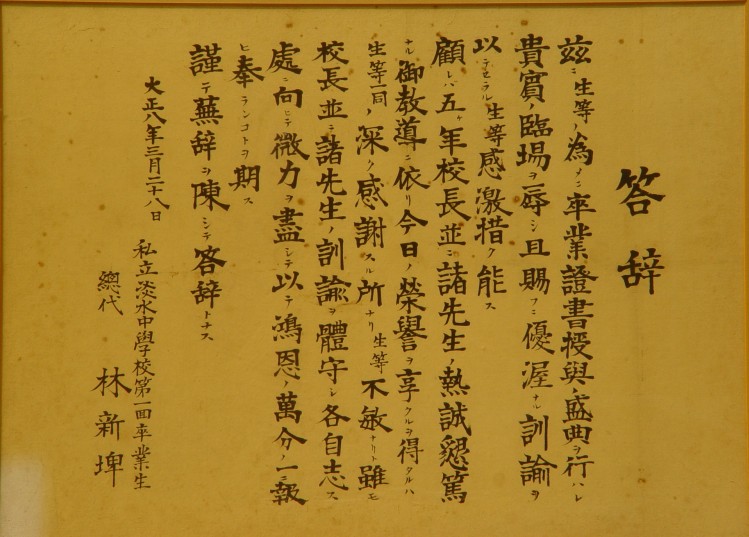 答辞
玆ニ生等ノ為メニ卒業證書授與ノ盛典ヲ行ハレ
貴賓ノ臨場ヲ辱シ且賜フニ優渥ナル訓諭ヲ
以テセラル生等感激措ク能ス
顧レバ五ヶ年校長並ニ諸先生ノ熱誠懇篤
ナル御教導ニ依リ今日ノ榮譽ヲ享クルヲ得タルハ
生等一同ノ深ク感謝スル所ナリ生等不敏ナリト雖モ
校長並ニ諸先生ノ訓諭ヲ體守シ各自志ス
處ニ向ヒテ微力ヲ盡シテ以テ鴻恩ノ萬分ノ一ニ報
ヒ奉ランコトヲ期ス
謹テ蕪辞ヲ陳シテ答辞トナス
大正八年三月二十八日
私立淡水中學校第一回卒業生
總代
林新埤